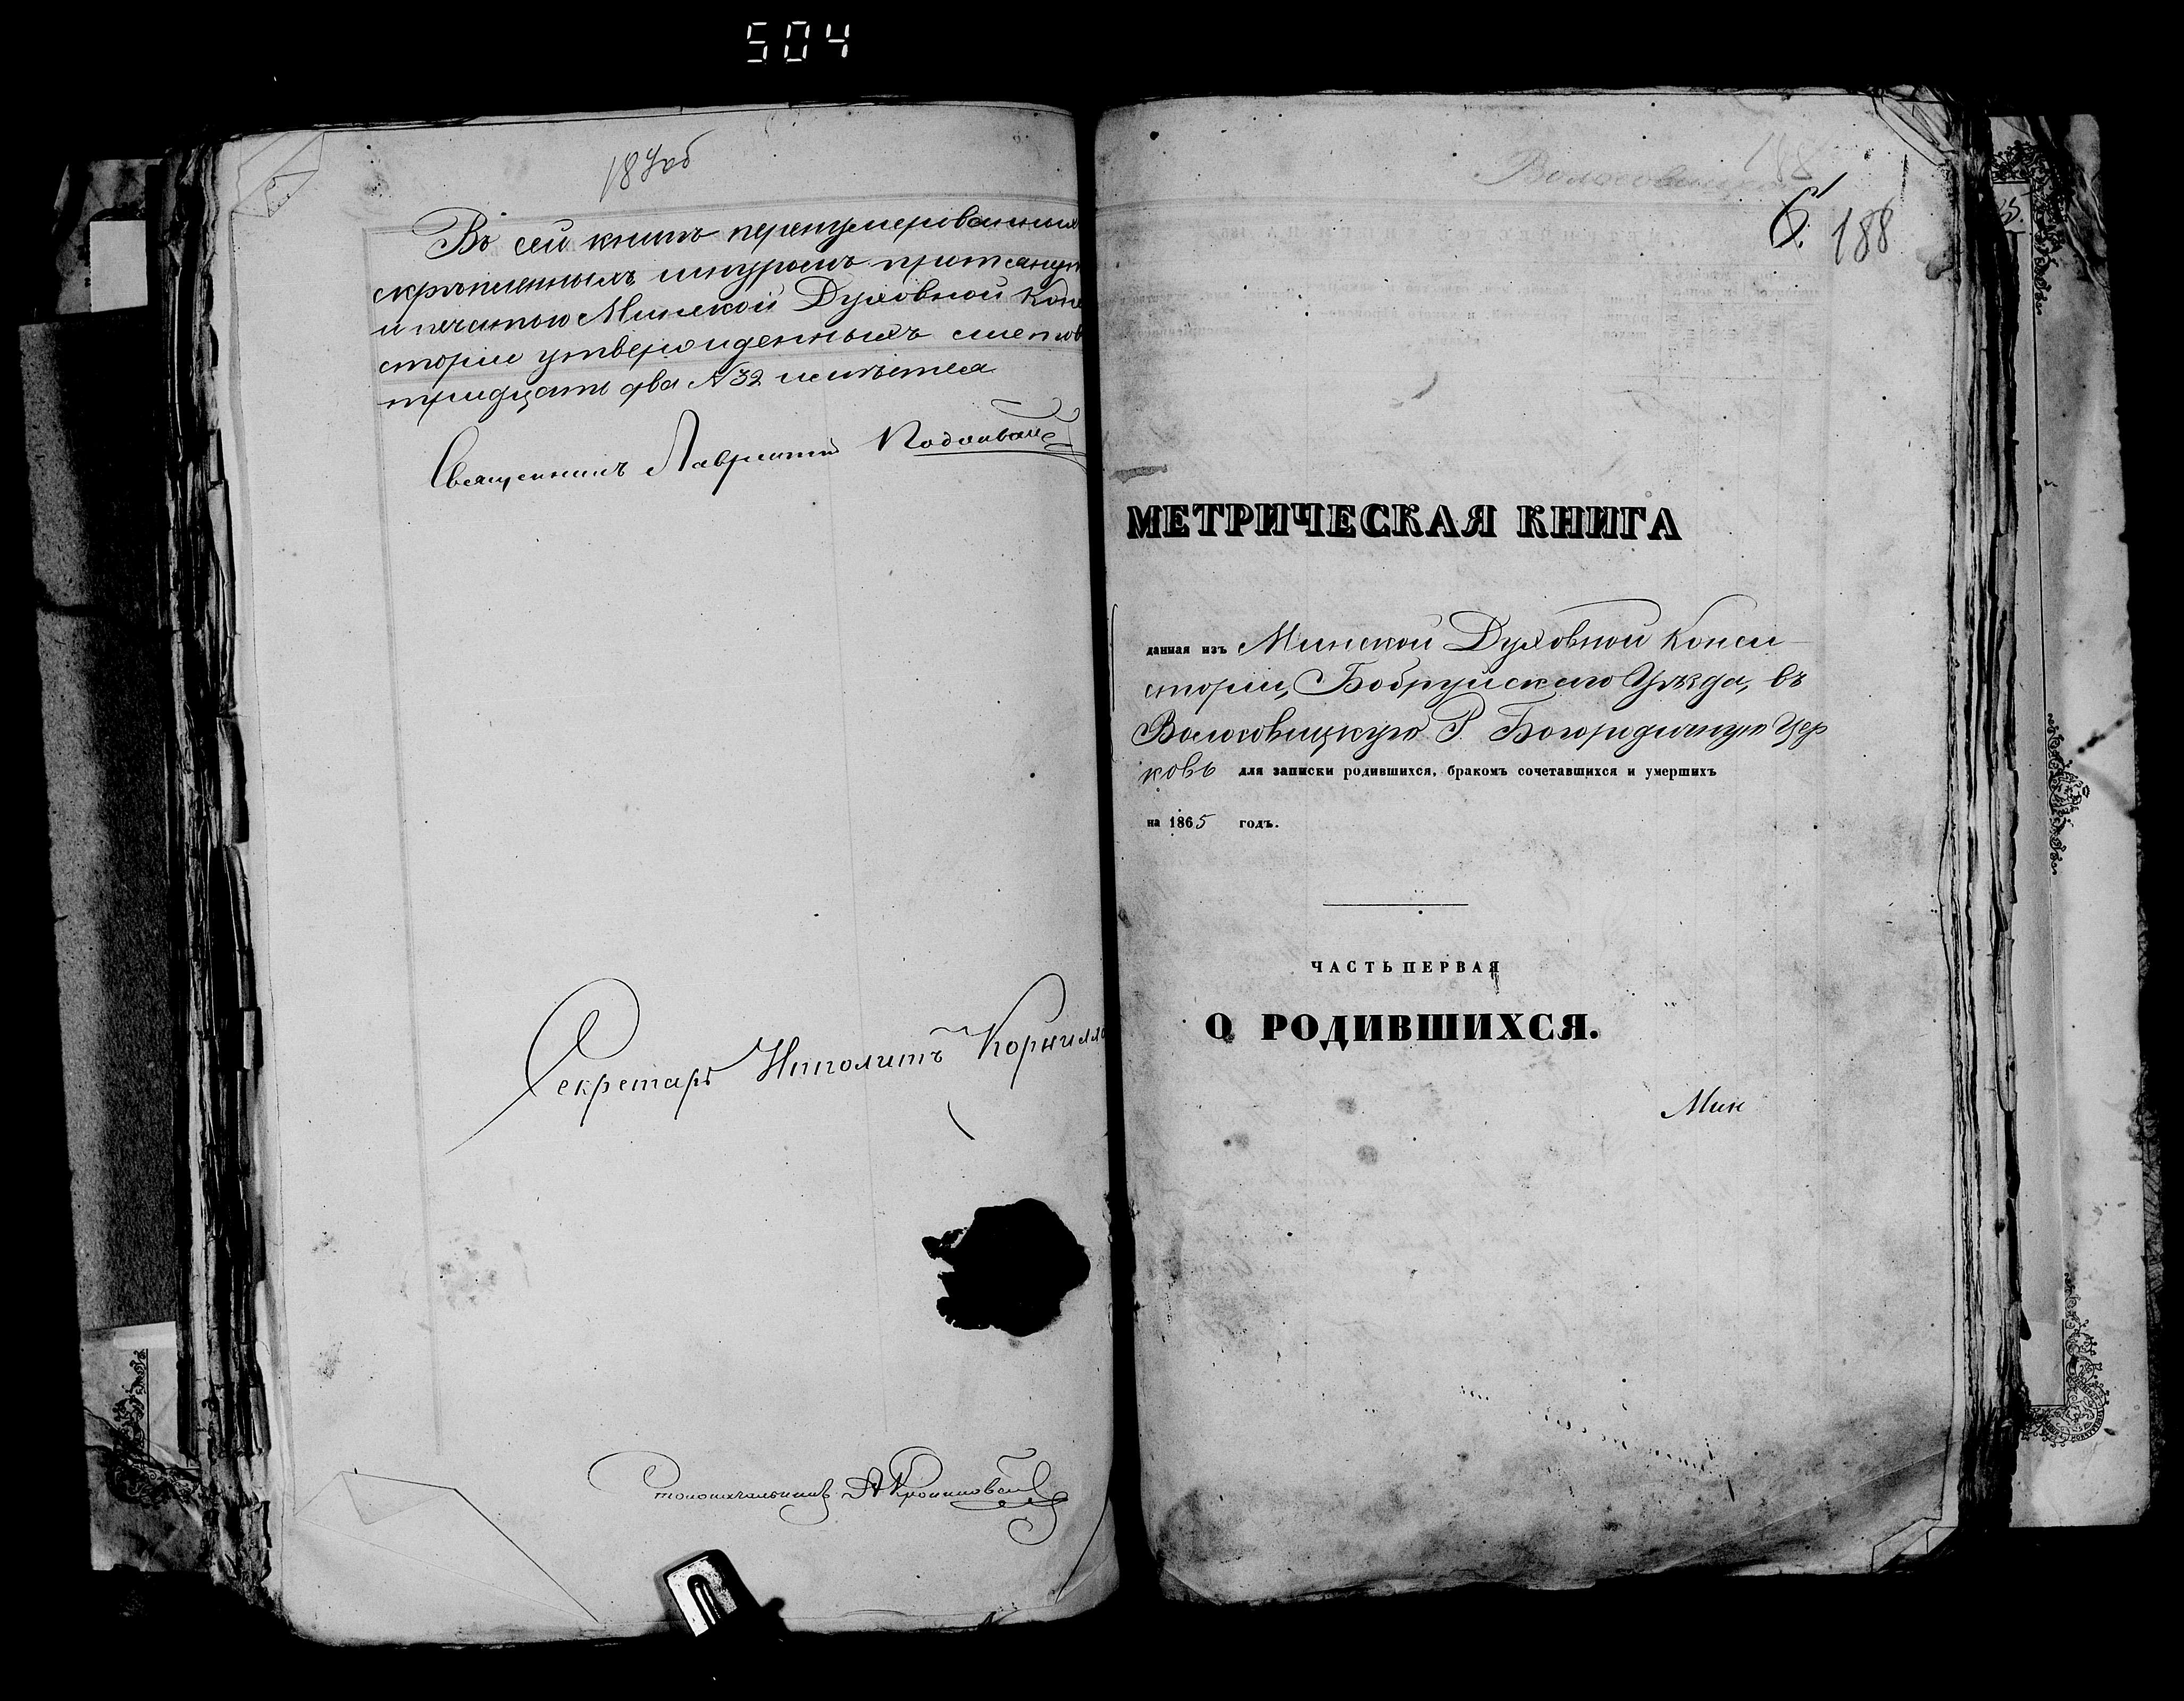 504
187об
Въ сей книгѣ перенумерованныхъ
скрѣпленныхъ шнуромъ
и печатью Минской Духовной Конси
сторіи утвержденныхъ листовъ
тридцать два № 32 имѣется
Священникъ Лаврентій
Секретарь Иполитъ Корнилло
Столоначальникъ
Волосовицкая
188
6. 188
МЕТРИЧЕСКАЯ КНИГА
данная изъ Минской Духовной Конси
сторіи, Бобруйскаго Уѣзда, въ
Волосовицкую Р. Богородичную Цер
ковь для записки родившихся, бракомъ сочетавшихся и умершихъ
на 1865 годъ.
ЧАСТЬ ПЕРВАЯ
О РОДИВШИХСЯ.
Мин